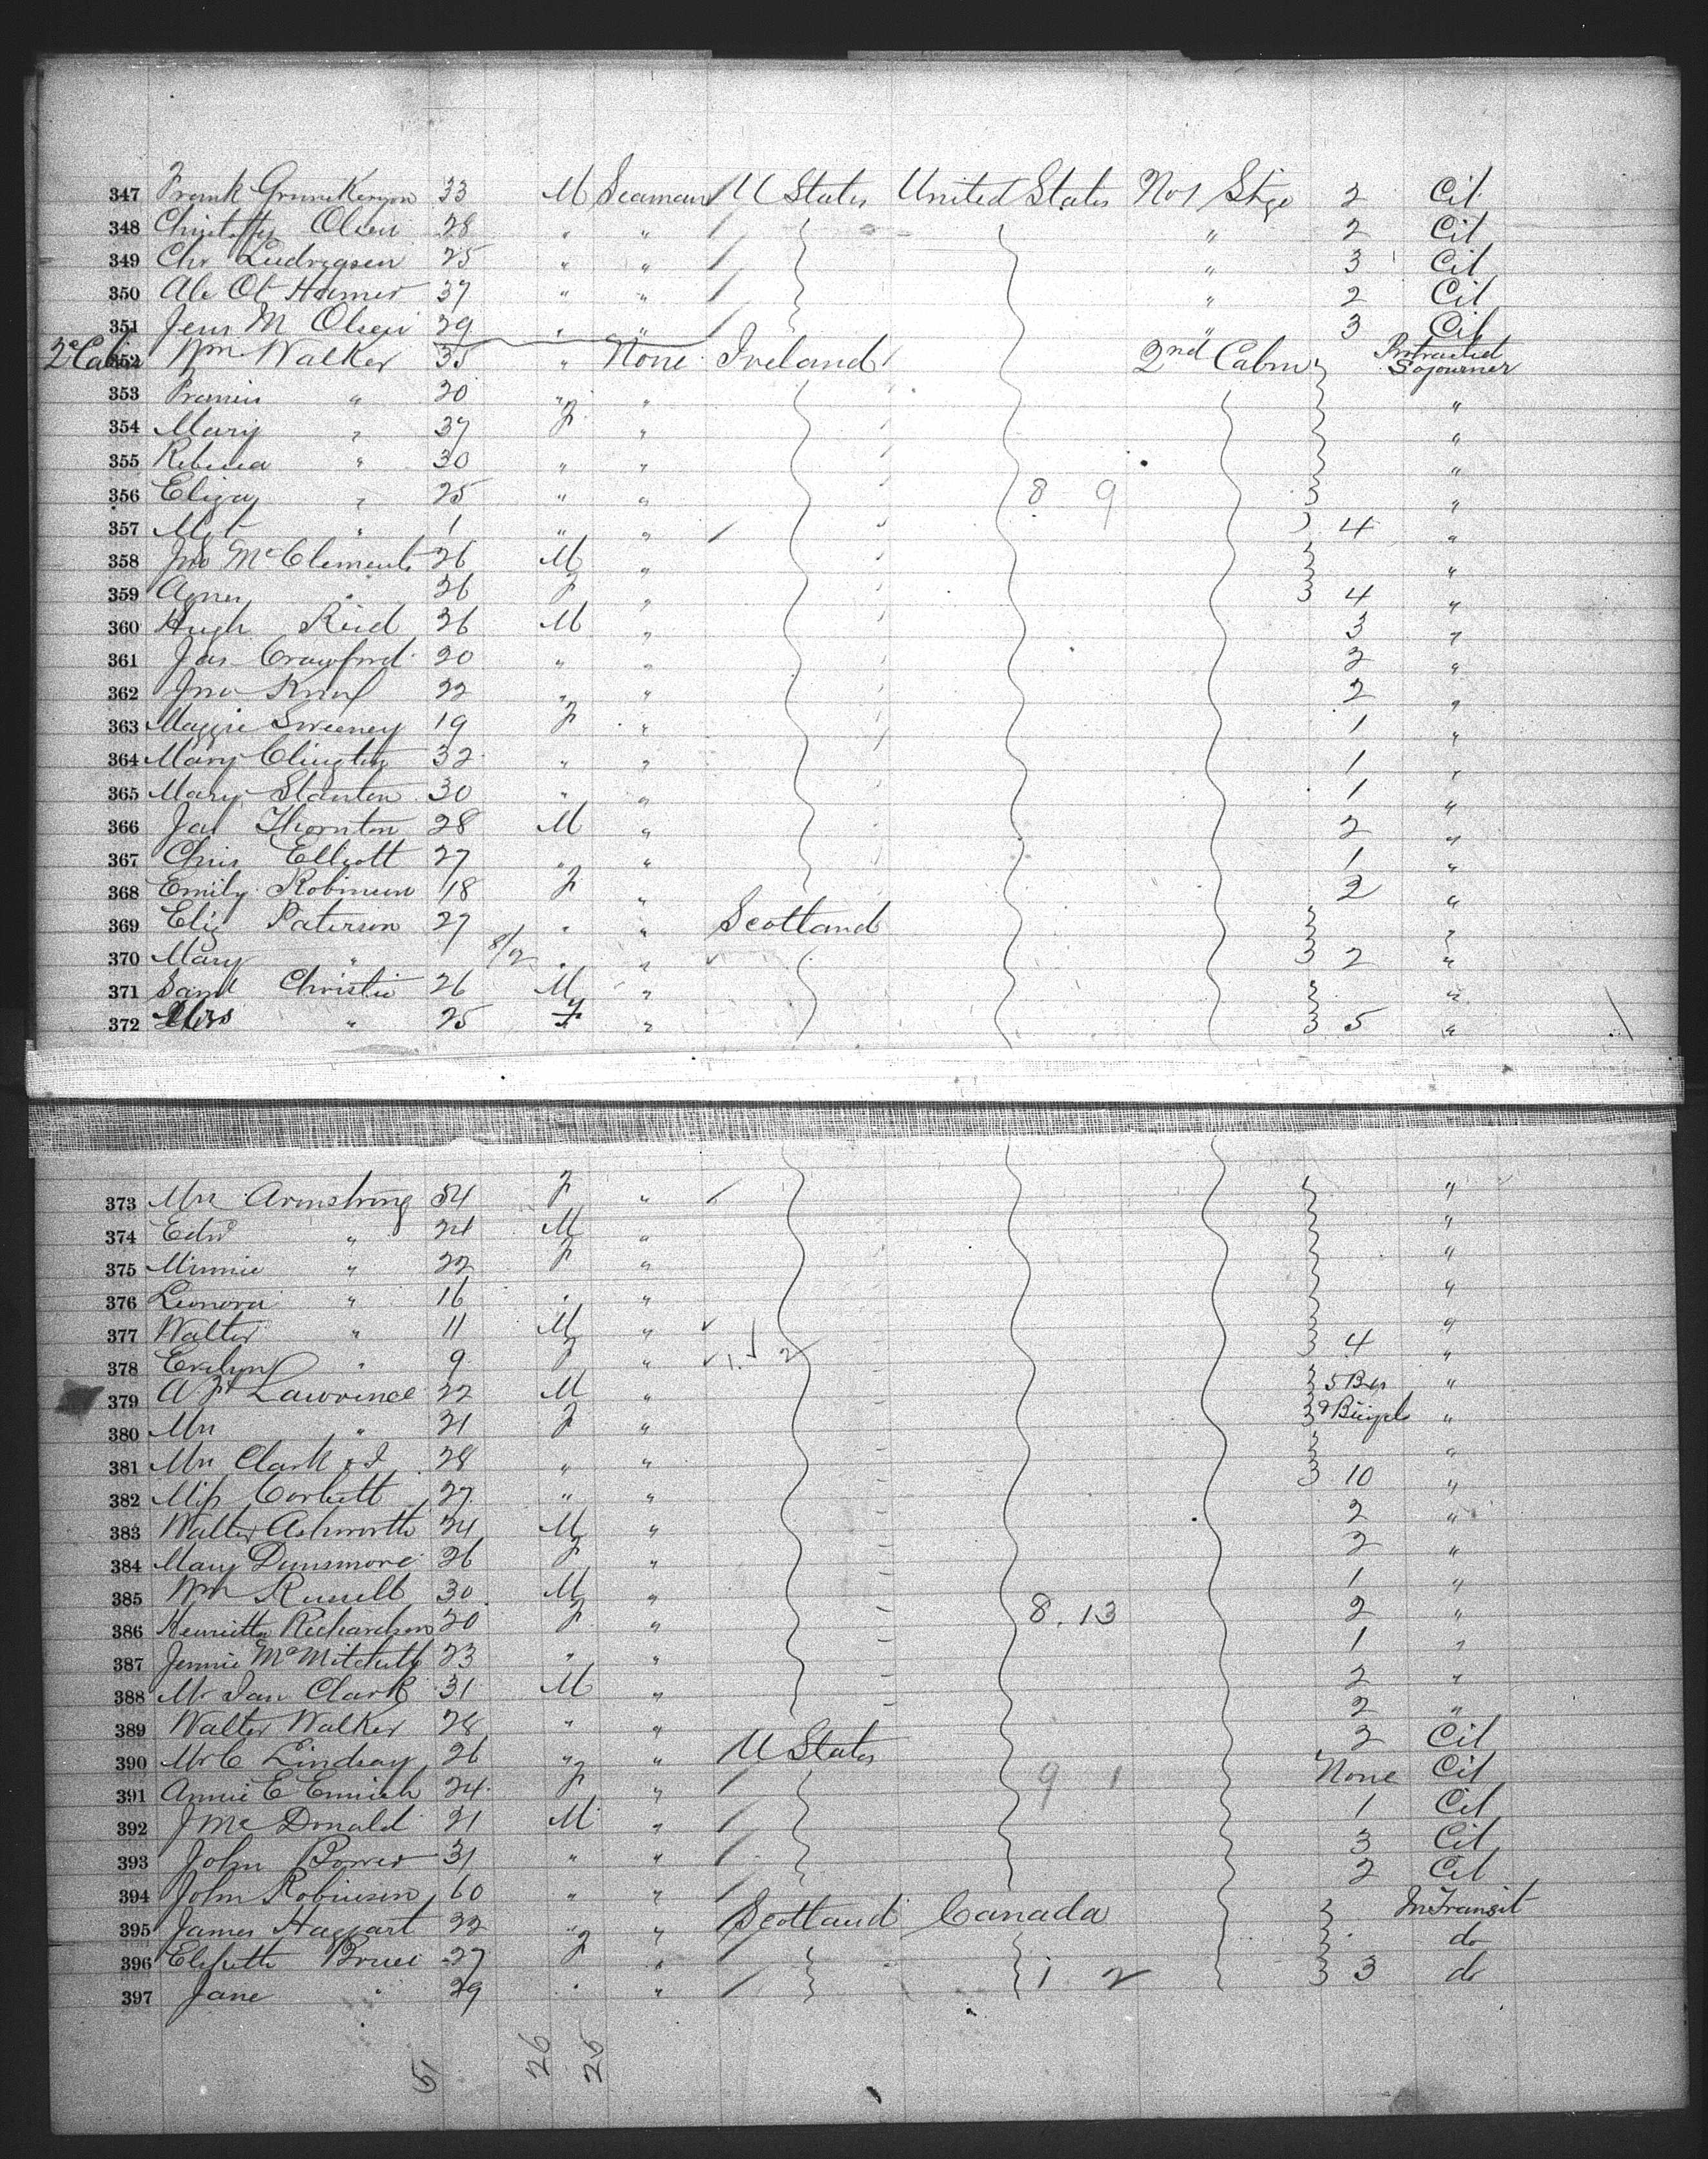 347 Frank 33 M Seaman U States United States No 1 Stge 2 Cit
348 Olsen 28 " " " 2 Cit
349 Chr 25 " " " 3 Cit
350 37 " " " 2 Cit
351 Jens M Olsen 29 " " " 3 Cit
2d Cabin 352 Wm Walker 35 " None Ireland 2nd Cabin Protracted Sojourner
353 " 20 " " "
354 Mary " 37 F " "
355 Rebecca " 30 " " "
356 Eliza " 25 " " 8 9 "
357 Mgt " 1 " " 4 "
358 Jno McClements 26 M " "
359 Agnes " 26 F " 4 "
360 Hugh Reid 36 M " 3 "
361 Jas Crawford 20 " " 2 "
362 Jno Knox 22 " " 2 "
363 Maggie Sweeney 19 F " 1 "
364 Mary 32 " " 1 "
365 Mary Stanton 30 " " 1 "
366 Jas Thornton 28 M " 2 "
367 Chris Elliott 27 " " 1 "
368 Emily Robinson 18 F " 2 "
369 Eliz Paterson 27 " " Scotland "
370 Mary " 8/12 " " 2 "
371 Saml Christie 26 M " "
372 Mrs " 25 F " 5 "
373 Mrs Armstrong 54 F " "
374 Edw " 24 M " "
375 Minnie " 22 F " "
376 Leonora " 16 " " "
377 Walter " 11 M " "
378 Evelyn " 9 F " 4 "
379 A F Lawrence 22 M " 5 Bxs "
380 Mrs " 21 F " 2 "
381 Mrs Clark 28 " " "
382 Miss Corbett 27 " " 10 "
383 Walter Ashworth 24 M " 2 "
384 Mary Dunsmore 26 F " 2 "
385 Wm Russell 30 M " 1 "
386 Henrietta Richardson 20 F " 8. 13 2 "
387 Jennie McMitchell 23 " " 1 "
388 Mr Ian Clark 31 M " 2 "
389 Walter Walker 28 " " 2 "
390 Mr C Lindsay 26 " " U States 3 Cit
391 Annie E 24 F " 9 1 None Cit
392 J McDonald 21 M " 1 Cit
393 John 31 " " 3 Cit
394 John Robinson 60 " " 2 Cit
395 James Haggart 22 " " Scotland Canada In Transit
396 Elspeth Bruce 27 F " do
397 Jane " 29 " " 1 2 3 do
51 26 25